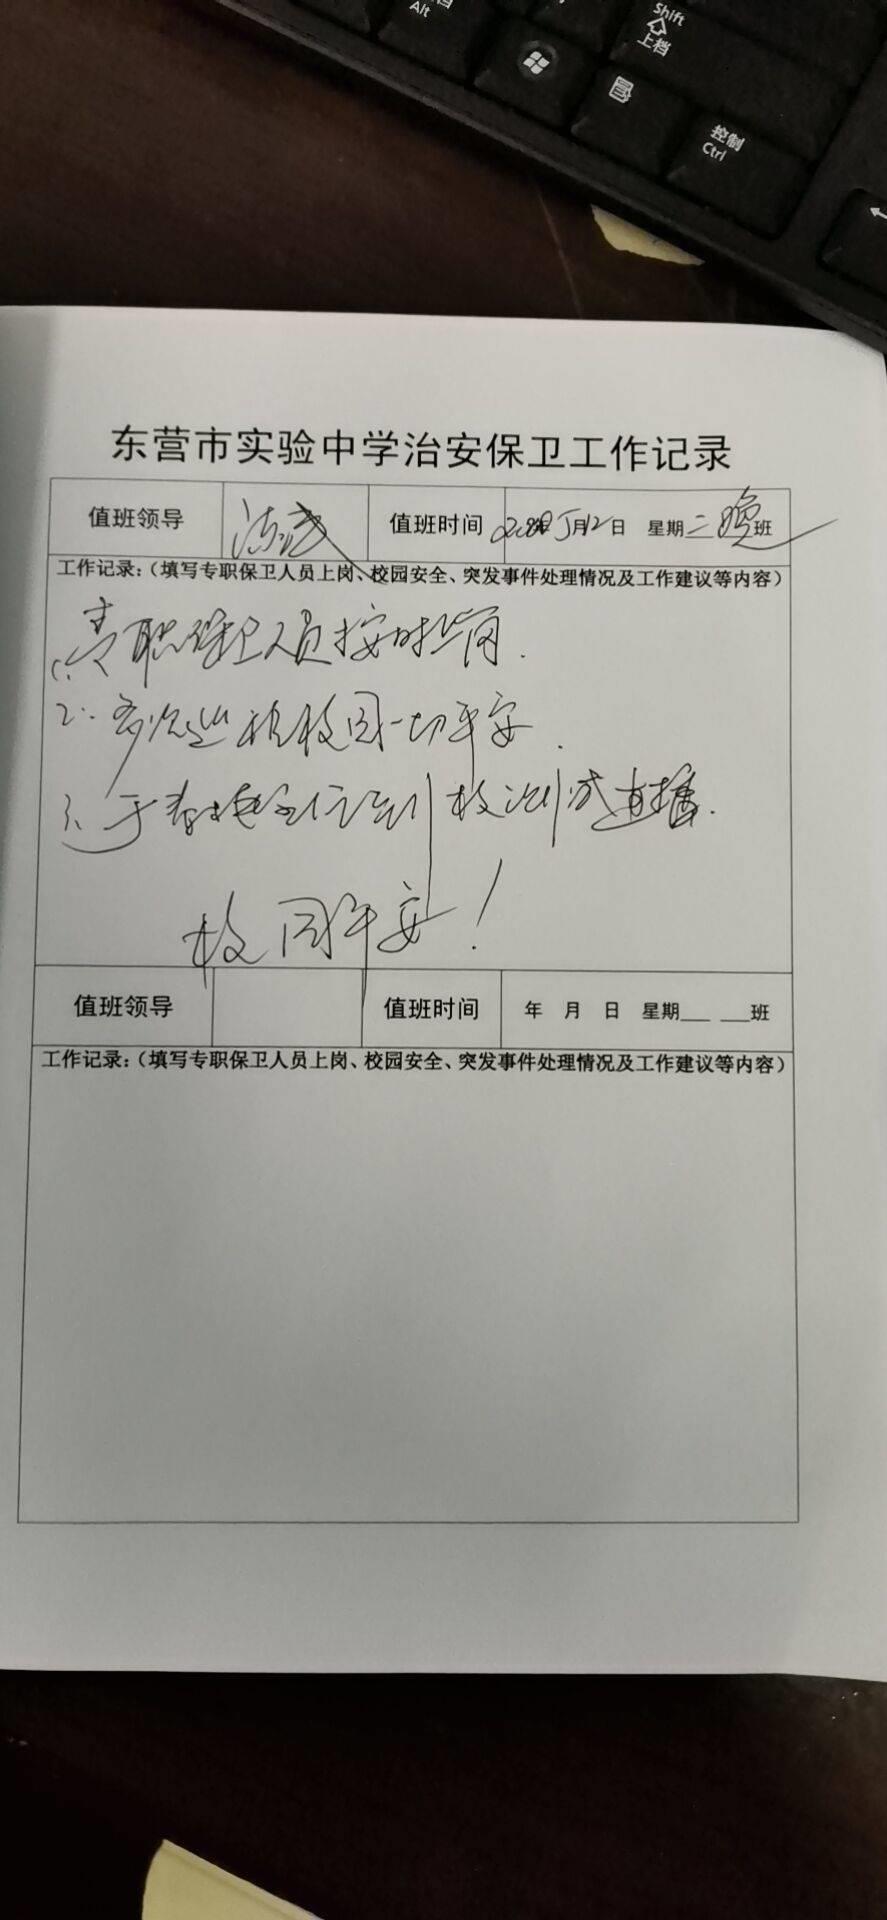 Alt
Shift
上档
控制
Ctrl
东营市实验中学治安保卫工作记录
值班领导 值班时间 2020年5月12日 星期二晚班
工作记录:（填写专职保卫人员上岗、校园安全、突发事件处理情况及工作建议等内容）
1. 专职保卫人员按时上岗.
2. 多次巡视校园一切平安.
3.
校园平安!
值班领导 值班时间 年 月 日 星期___ ___班
工作记录:（填写专职保卫人员上岗、校园安全、突发事件处理情况及工作建议等内容）